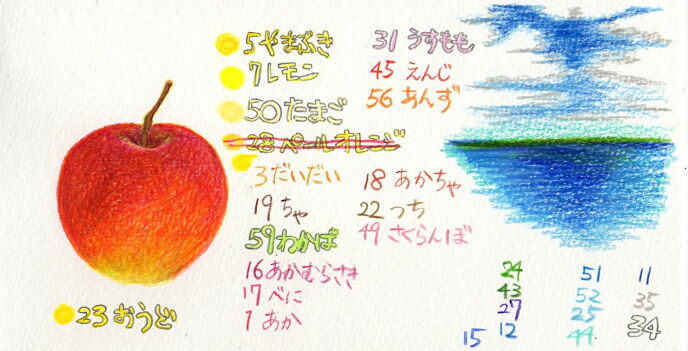 5やまぶき
7レモン
50たまご
28ペールオレンジ
3だいだい
19ちゃ
59わかば
16あかむらさき
17べに
1あか
23おうど
31うすもも
45えんじ
56あんず
18あかちゃ
22つち
49さくらんぼ
24
43
27
12
15
51
52
25
44
11
35
34